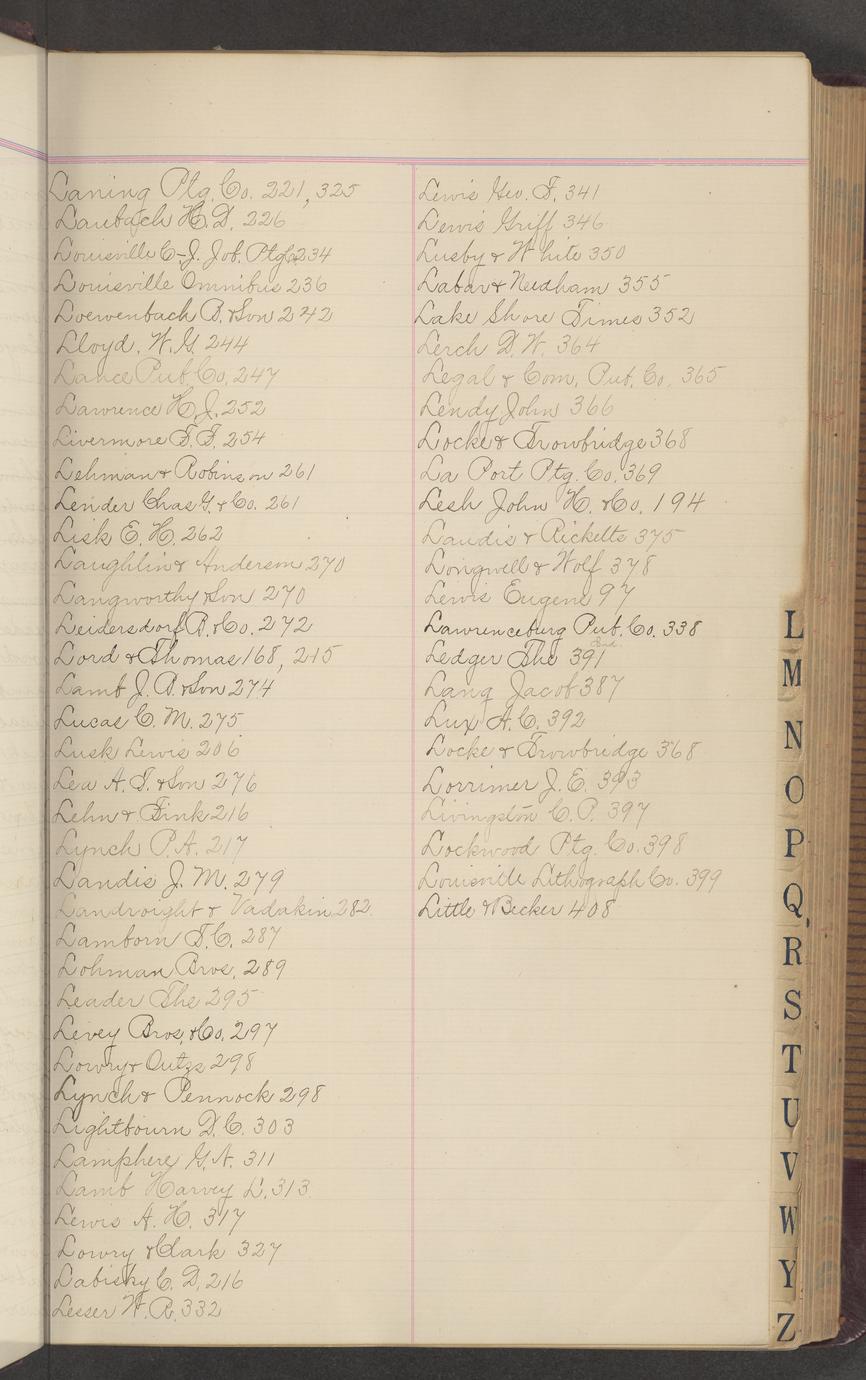 Laning Ptg. Co. 221, 325
Laubach H. D. 226
Louisville C-J. Job. Ptg Co 234
Louisville Omnibus 236
Loewenbach B. & Son 242
Lloyd. W. G. 244
Lance Pub. Co. 247
Lawrence H. J. 252
Livermore F. F. 254
Lehman & Robinson 261
Lender Chas G. & Co. 261
Lisk E. H. 262
Laughlin & Anderson 270
Langworthy & Son 270
Leidersdorf B. & Co. 272
Lord & Thomas 168, 215
Lamb J. B. & Son 274
Lucas C. M. 275
Lusk Lewis 206
Lea A. T. & Son 276
Lehn & Fink 216
Lynch P. A. 217
Landis J. M. 279
Landrought & Vadakin 282.
Lamborn T. C. 287
Lohman Bros. 289
Leader The 295
Levey Bros, & Co. 297
Lowry & Outzs 298
Lynch & Pennock 298
Lightbourn D. C. 303
Lamphere G. N. 311
Lamb Harvey L. 313
Lewis A. H. 317
Lowry & Clark 327
Labisky C. D. 216
Lesser W. R. 332
Lewis Geo. T. 341
Lewis Griff 346
Lusby & White 350
Labar & Needham 355
Lake Shore Times 352
Lerch D. W. 364
Legal & Com. Pub. Co. 365
Lendy John 366
Locke & Trowbridge 368
La Port Ptg. Co. 369
Lesh John H. & Co. 194
Landis & Ricketts 375
Longwell & Wolf 378
Lewis Eugene 97
Lawrenceburg Pub. Co. 338
Ledger The 391
Lang Jacob 387
Lux A. C. 392
Locke & Trowbridge 368
Lorrimer J. E. 393
Livingston C. P. 397
Lockwood Ptg. Co. 398
Louisville Lithograph Co. 399
Little & Becker 408
L
M
N
O
P
Q
R
S
T
U
V
W
Y
Z